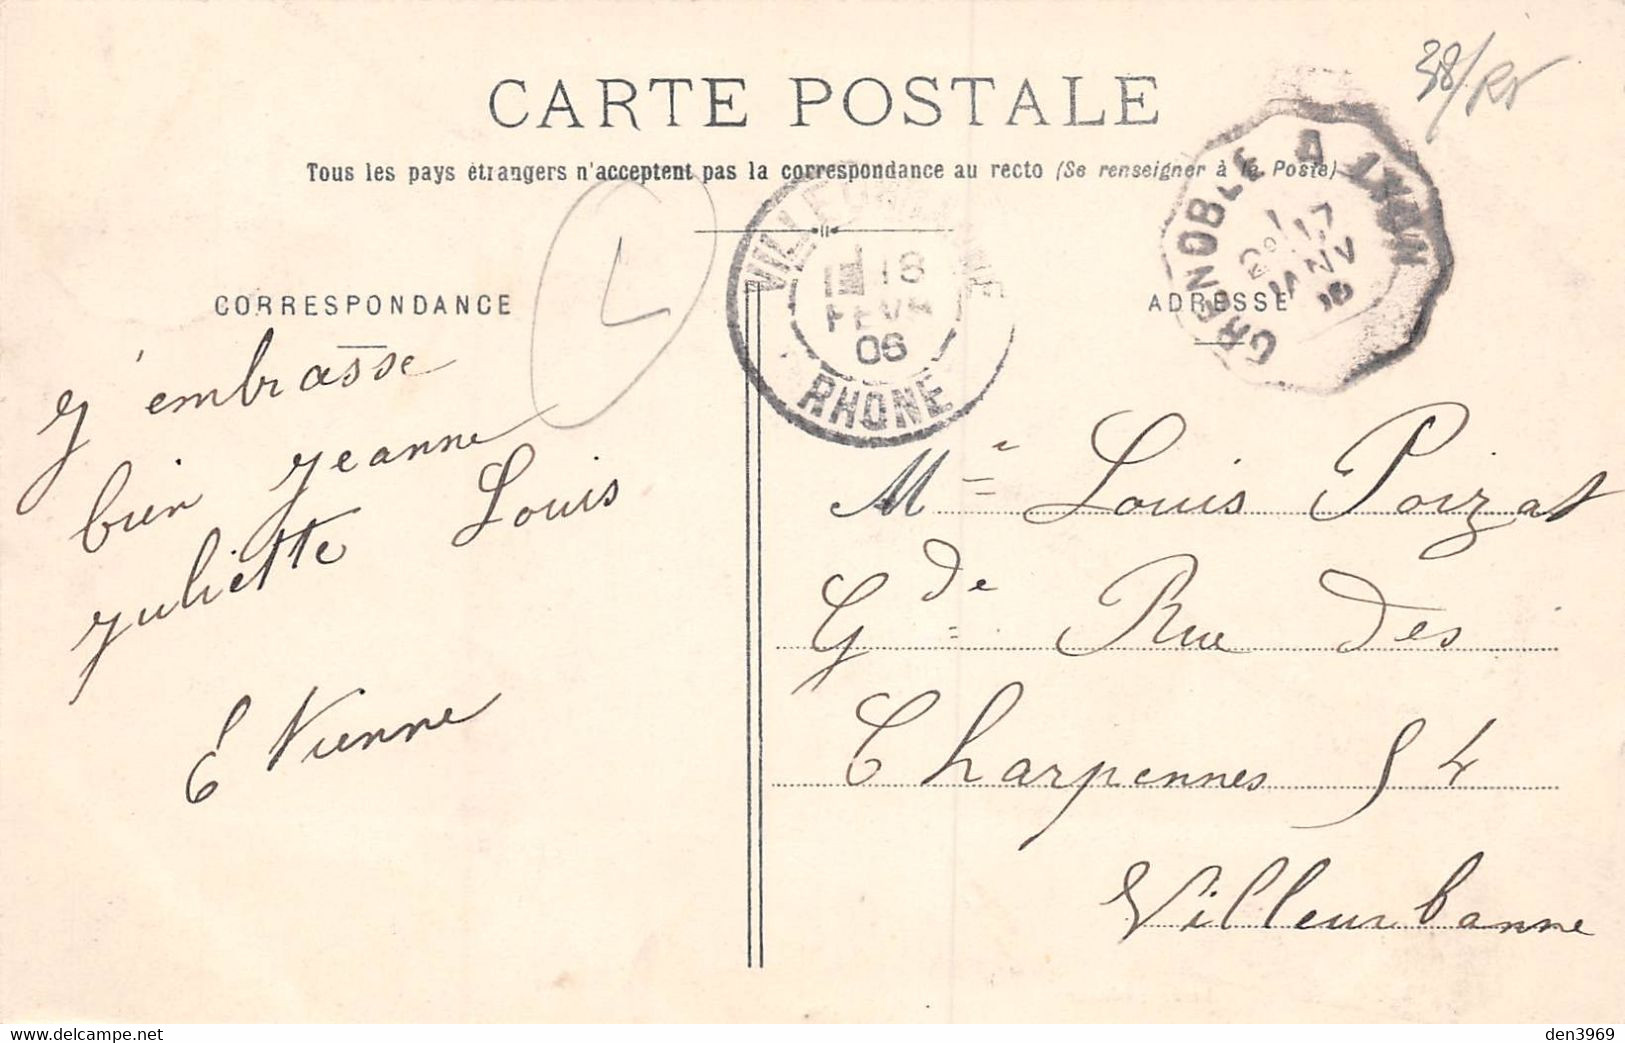 38/
CARTE POSTALE
Tous les pays étrangers n'acceptent pas la correspondance au recto (Se renseigner à la Poste)
GRENOBLE A LYON
17
JANV
VILLEURBANNE
18
FEVR
06
RHONE
CORRESPONDANCE
ADRESSE
J'embrasse
bien Jeanne
Juliette Louis
Etienne
Mme Louis Poizat
Gde Rue des
Charpennes 54
Villeurbanne
delcampe.net
den3969